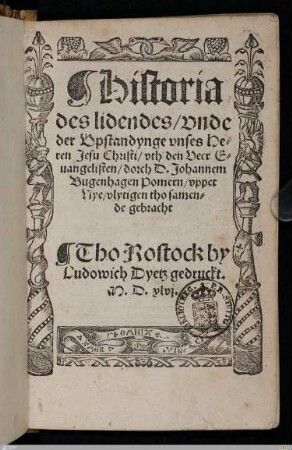 Historia
des lidendes/ vnde
der Vpstandynge vnses He-
ren Jesu Christi/ vth den Veer E-
uangelisten/ dorch D. Johannem
Bugenhagen Pomern/ vpper
Nye/ vlytigen tho samen-
de gebracht
Tho Rostock by
Ludowich Dyetz gedruckt.
M. D. xlvj.
OMNIA